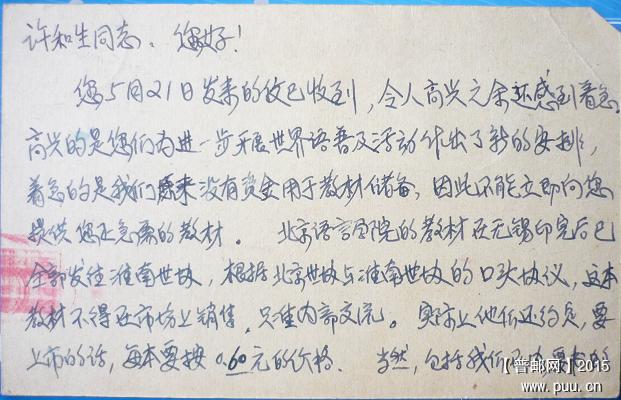 许和生同志：您好！
您5月21日发来的信已收到，令人高兴之余还感到着急。
高兴的是您们为进一步开展世界语普及活动作出了新的安排，
着急的是我们原来没有资金用于教材储备，因此不能立即向您
提供您正急需的教材。 北京语言学院的教材在无锡印完后已
全部发往淮南世协，根据北京世协与淮南世协的口头协议，这本
教材不得在市场上销售，只准内部交流。实际上他们还约定，要
上市的话，每本要按0.60元的价格。 当然，包括我们
【普邮网】2015
www.puu.cn